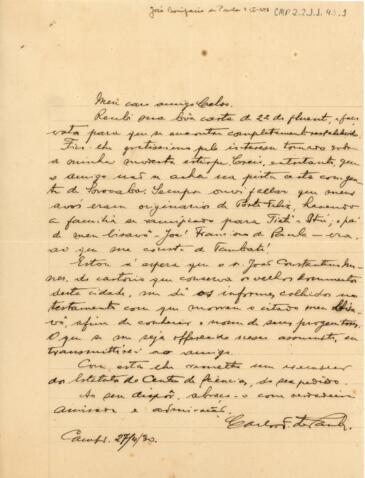 CMP 2.2.1.1.43.1
Meu caro amigo Celso.
Recebi sua boa carta de 22 do fluente, e faço
votos para que se encontre completamente restabelecido.
Fico-lhe gratissimo pelo interesse tomado sobre
a minha modesta estirpe. Creio, entretanto, que
o amigo não se acha na pista certa com gen-
te de Sorocaba. Sempre ouvi fallar que meus
avós eram originarios de Porto Feliz, havendo
a familia se ramificado para Tieté e Itú, e o pai
de meu bisavô - José Francisco de Paula - era,
ao que me consta de Taubaté!
Estou á espera que o sr. João Constantino
do cartorio que conserva os velhos documentos
desta cidade, me dê os informes colhidos no
testamento com que morreu o citado meu bisa-
vô, afim de conhecer o nome de seus progenitores.
O que se me seja offerecido nesse assumpto, eu
transmittirei ao amigo.
Com esta lhe remetto um
do Instituto do Centro de Sciencias, a seu pedido.
Ao seu dispôr, abraça-o com verdadeira
amisade e admiração,
Carlos de Paula
Camps. 27/4/30.